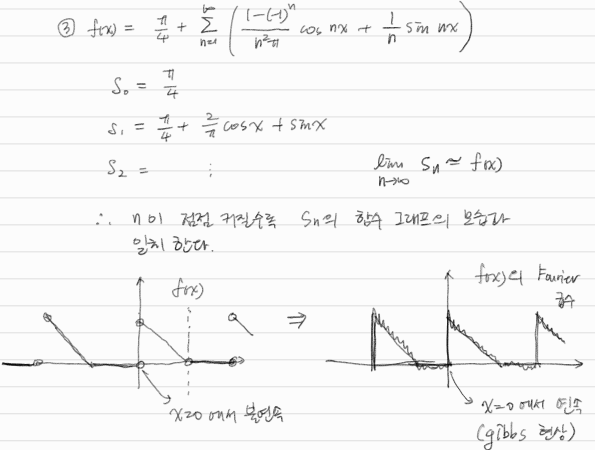 ③ f(x) = π/4 + ∑_{n=1}^{∞} ( (1-(-1)^n)/(n²π) cos nx + 1/n sin nx )
S₀ = π/4
S₁ = π/4 + 2/π cosx + sinx
S₂ = ⋮
lim_{n→∞} Sₙ ≈ f(x)
∴ n이 점점 커질수록 Sₙ의 함수 그래프의 모습과
일치 한다.
f(x)
⇒
f(x)의 Fourier
급수
x=0 에서 불연속
x=0 에서 연속
(gibbs 현상)